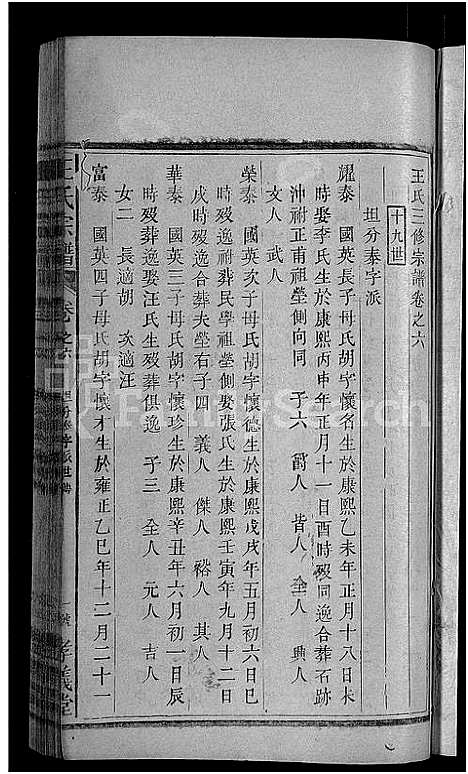 王氏三修宗譜卷之六
十九世
坦分泰字派
耀泰 國英長子母氏胡字懷名生於康熙乙未年正月十八日未
時娶李氏生於康熙丙申年正月十一日酉時歿同逸合葬石跡
沖祔正甫祖塋側向同 子六 爵人 皆人 全人 興人
文人 武人
榮泰 國英次子母氏胡字懷德生於康熙戊戌年五月初六日巳
時歿逸祔葬民學祖塋側娶張氏生於康熙壬寅年九月十二日
戌時歿合葬夫塋右子四 義人 傑人 裕人 其人
華泰 國英三子母氏胡字懷珍生於康熙辛丑年六月初一日辰
時歿葬逸娶汪氏生歿葬俱逸 子三 全人 元人 吉人
女二 長適胡 次適汪
富泰 國英四子母氏胡字懷才生於雍正乙巳年十二月二十一
王氏宗譜 卷之六 坦分泰字派世傳 一號 孝義堂
FamilySearch